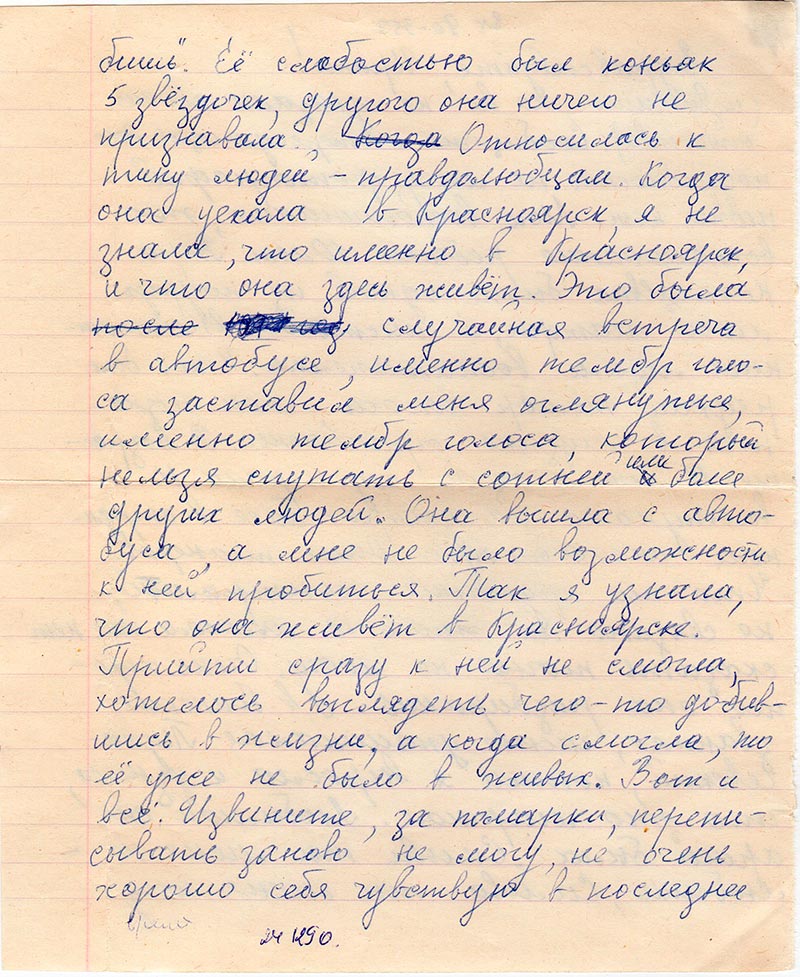 бишь". Её слабостью был коньяк
5 звёздочек, другого она ничего не
признавала. Когда Относилась к
типу людей – правдолюбцам. Когда
она уехала в Красноярск, я не
знала, что именно в Красноярск,
и что она здесь живёт. Это была
после год, случайная встреча
в автобусе, именно тембр голо-
са заставил меня оглянуться,
именно тембр голоса, который
нельзя спутать с сотней или более
других людей. Она вышла с авто-
буса, а мне не было возможности
к ней пробиться. Так я узнала,
что она живёт в Красноярске.
Прийти сразу к ней не смогла,
хотелось выглядеть чего-то добив-
шись в жизни, а когда смогла, то
её уже не было в живых. Вот и
всё. Извините, за помарки, перепи-
сывать заново не могу, не очень
хорошо себя чувствую в последнее
время
24 1290.